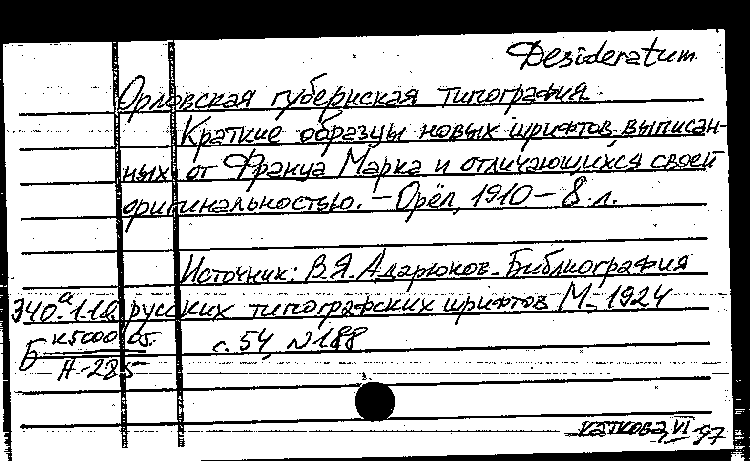 Desideratum
Орловская губернская типография.
Краткие образцы новых шрифтов, выписан-
ных от Франца Марка и отличающихся своей
оригинальностью. – Орёл, 1910 – 8 л.
Источник: В.Я. Адарюков. Библиография
русских типографских шрифтов М., 1924
с. 54, №188
Б К5000 об.
А-285
Каткова, VI 97